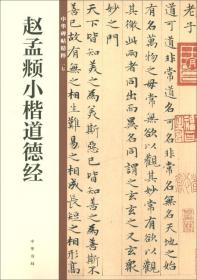 赵孟頫小楷道德经
中华碑帖精粹
中华书局
老子
道可道非常道名可名非常名無名天地之始
有名萬物之母常無欲以觀其妙常有欲以觀
其徼此兩者同出而異名同謂之玄玄之又玄衆
妙之門
天下皆知美之為美斯惡已皆知善之為善斯不
善已故有無之相生難易之相成長短之相形